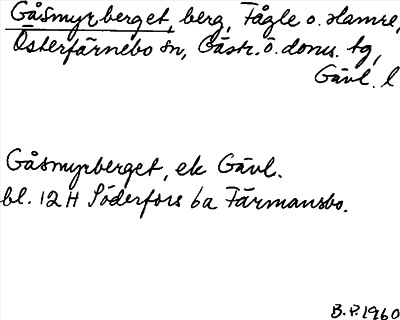 Gåsmyrberget, berg, Fågle o. Hamre,
Österfärnebo sn, Gästr. ö. doms. tg,
Gävl. l
Gåsmyrberget, ek Gävl.
bl. 12 H Söderfors 6a Färmansbo.
B.P. 1960